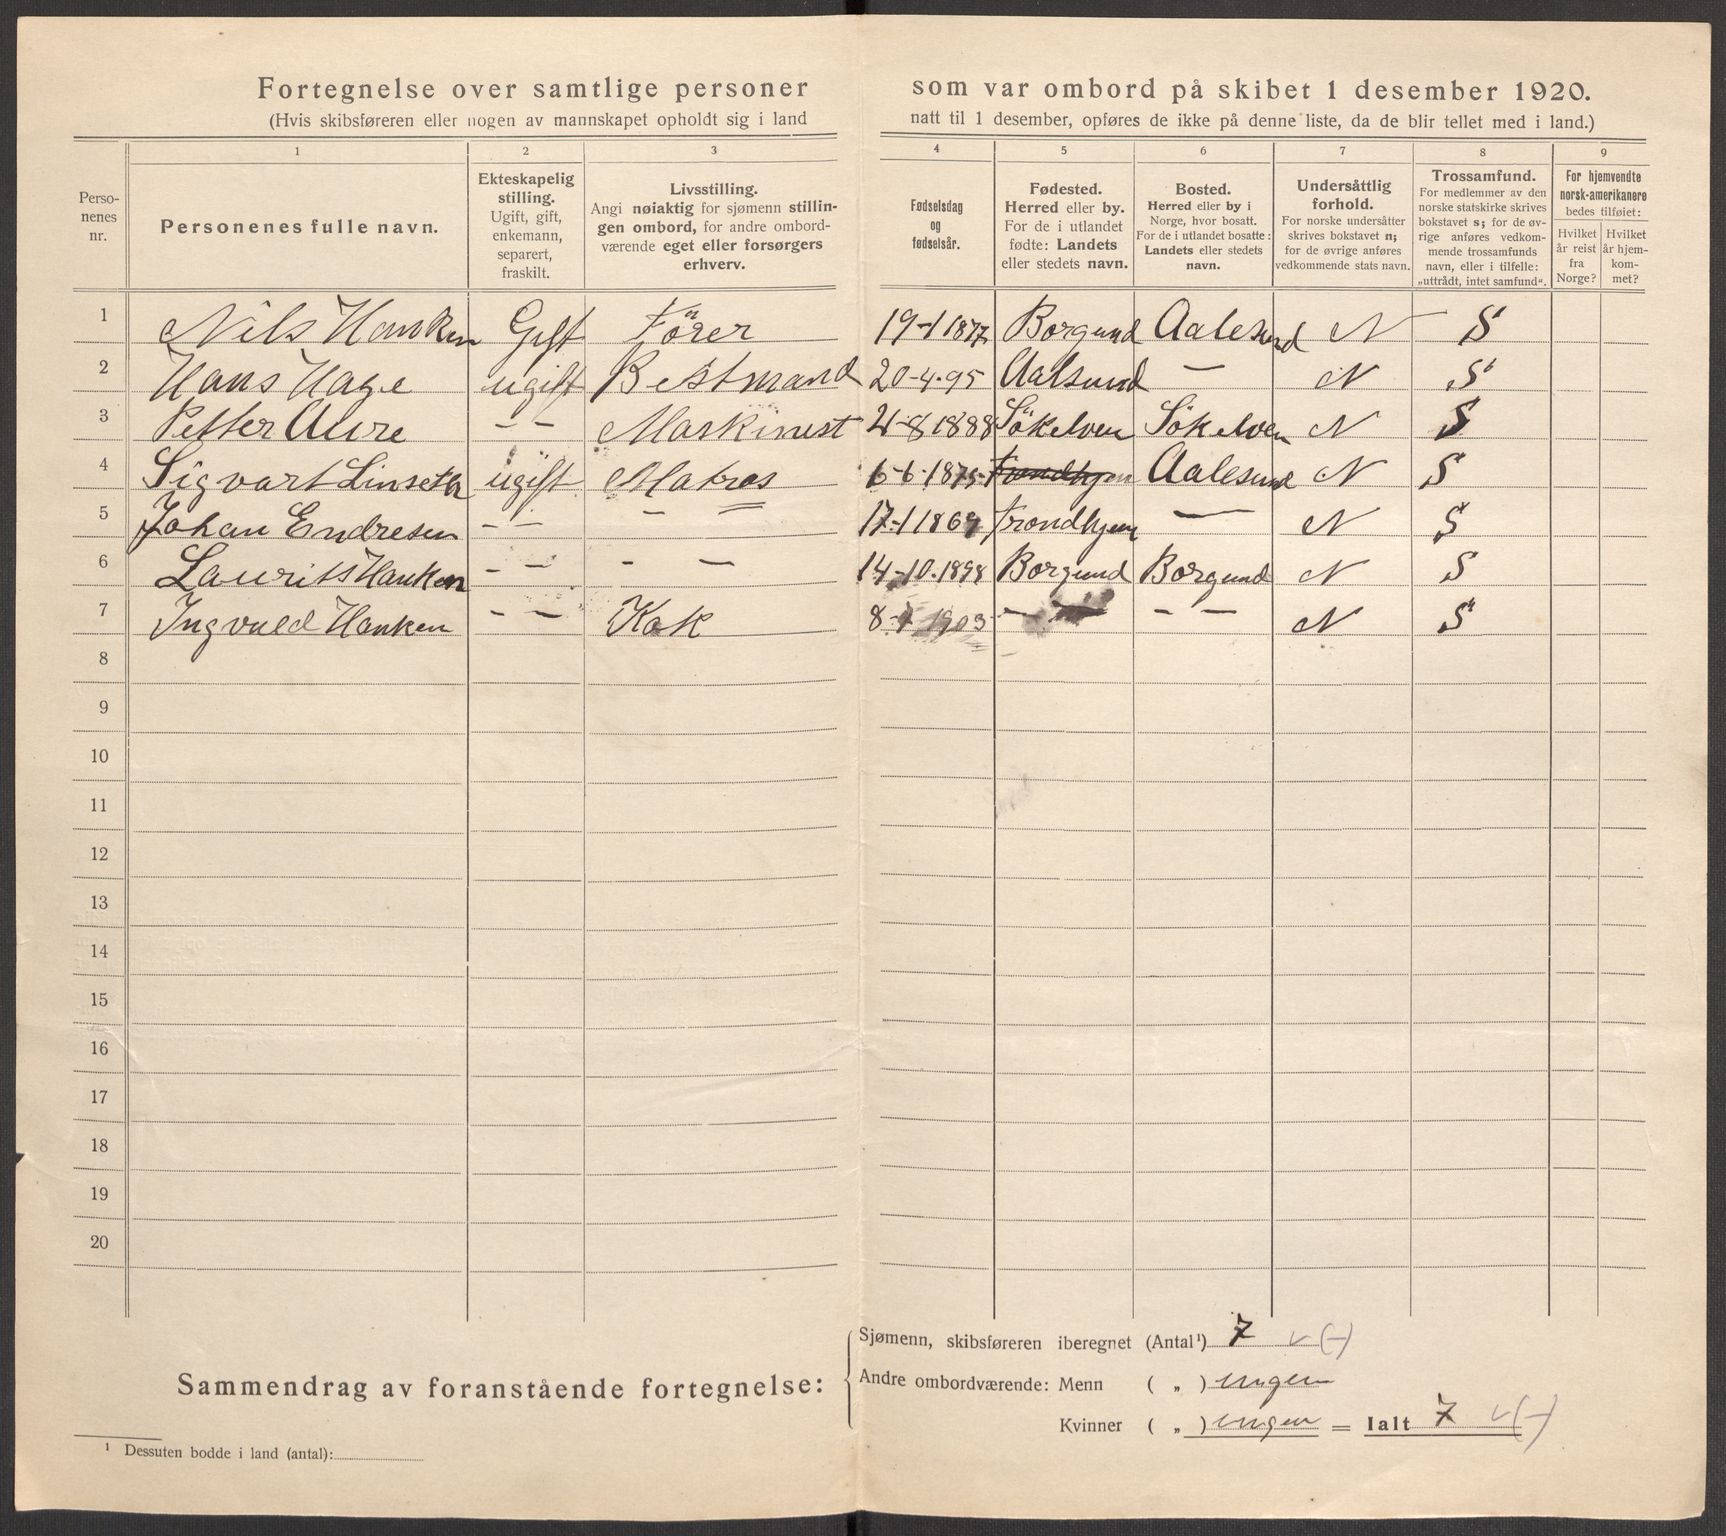 Fortegnelse over samtlige personer som var ombord på skibet 1 desember 1920.
(Hvis skibsføreren eller nogen av mannskapet opholdt sig i land natt til 1 desember, opføres de ikke på denne liste, da de blir tellet med i land.)
Perso-
nenes
nr.
1
Personenes fulle navn.
2
Ekteskapelig
stilling.
Ugift, gift,
enkemann,
separert,
fraskilt.
3
Livsstilling.
Angi nøiaktig for sjømenn stillin-
gen ombord, for andre ombord-
værende eget eller forsørgers
erhverv.
4
Fødselsdag
og
fødselsår.
5
Fødested.
Herred eller by.
For de i utlandet
fødte: Landets
eller stedets navn.
6
Bosted.
Herred eller by i
Norge, hvor bosatt.
For de i utlandet bosatte:
Landets eller stedets
navn.
7
Undersåttlig
forhold.
For norske undersåtter
skrives bokstavet n;
for de øvrige anføres
vedkommende stats navn.
8
Trossamfund.
For medlemmer av den
norske statskirke skrives
bokstavet s; for de øv-
rige anføres vedkom-
mende trossamfunds
navn, eller i tilfelle:
„uttrådt, intet samfund“.
9
For hjemvendte
norsk-amerikanere
bedes tilføiet:
Hvilket
år reist
fra
Norge?
Hvilket
år hjem-
kom-
met?
1 Nils Hanken Gift Förer 19-1 1877 Borgund Aalesund N S
2 Hans Hage ugift Bestmand 20-4-95 Aalsund — N S
3 Petter Aure — — Maskinist 21-8 1888 Sökelven Sökelven N S
4 Sigvart Linseth ugift Matros 6-6-1875 Trondhjem Aalesund N S
5 Johan Endresen — — — = 17-1 1869 Trondhjem — N S
6 Laurits Hanken — — - — 14-10-1898 Borgund Borgund N S
7 Ingvald Hanken — — Kok 8- 1903 — — — N S
8
9
10
11
12
13
14
15
16
17
18
19
20
Sammendrag av foranstående fortegnelse:
Sjømenn, skibsføreren iberegnet (Antal¹) 7 v (-)
Andre ombordværende: Menn ( „ ) ingen
Kvinner ( „ ) ingen = Ialt 7 v (-)
¹ Dessuten bodde i land (antal):